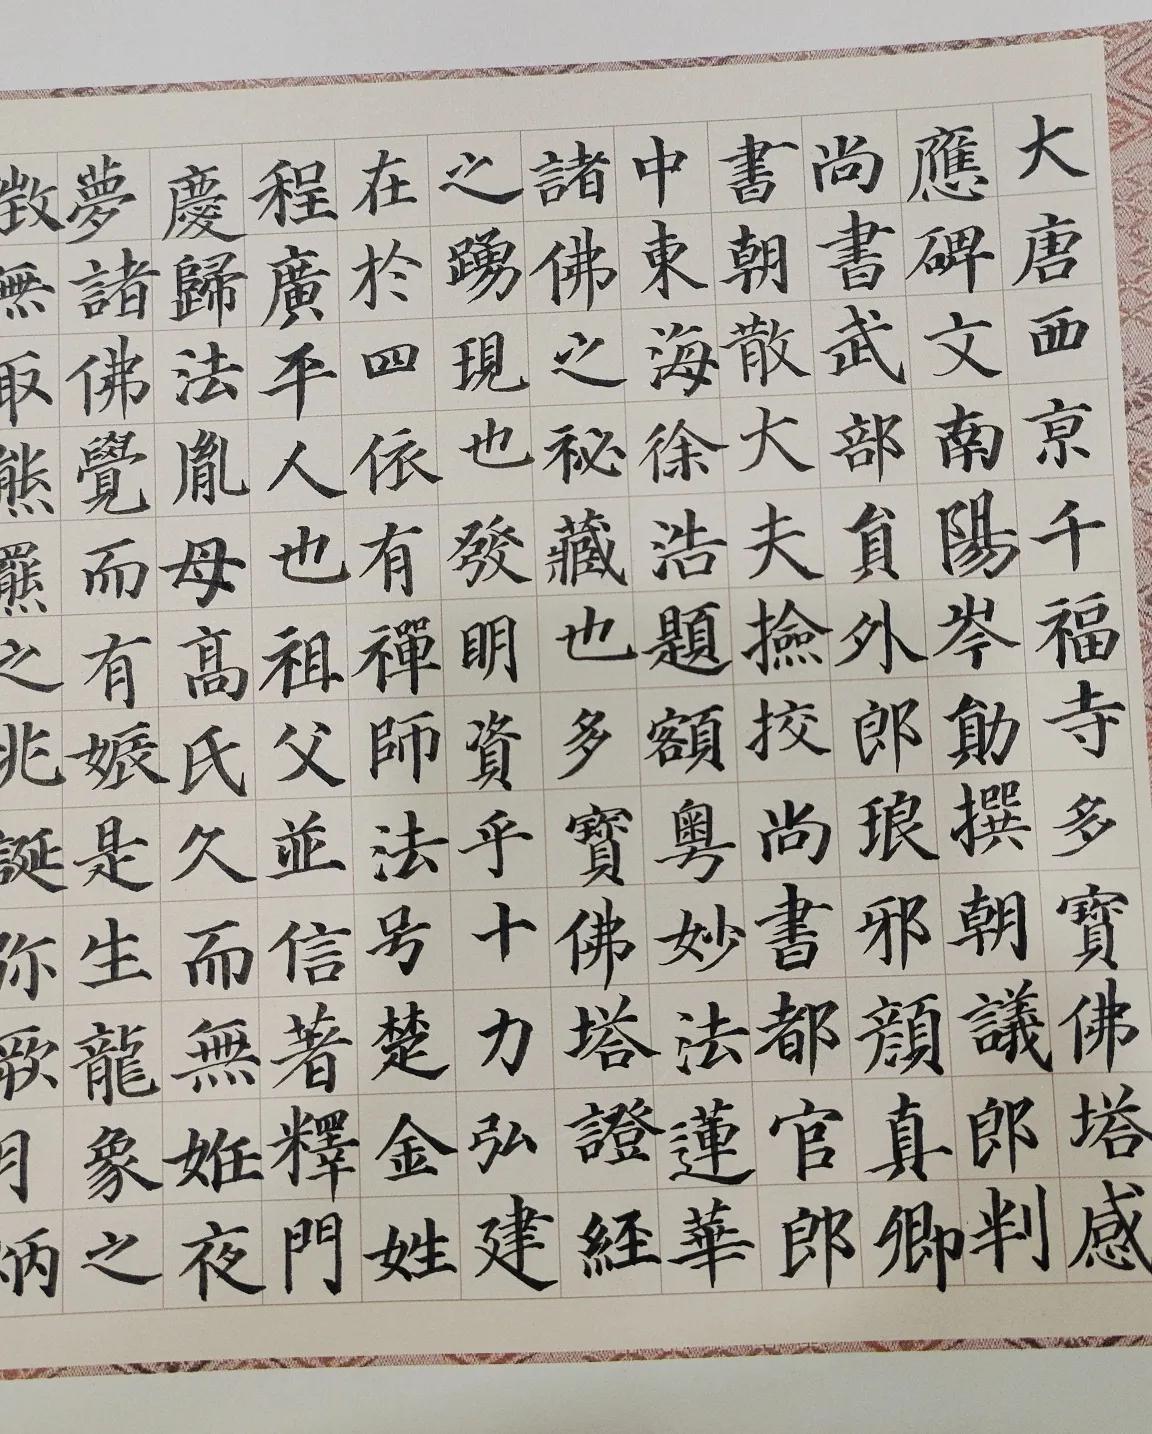 大唐西京千福寺多寶佛塔感
應碑文南陽岑勛撰朝議郎判
尚書武部員外郎琅邪顏真卿
書朝散大夫撿挍尚書都官郎
中東海徐浩題額粵妙法蓮華
諸佛之祕藏也多寶佛塔證經
之踴現也發明資乎十力弘建
在於四依有禪師法号楚金姓
程廣平人也祖父並信著釋門
慶歸法胤母高氏久而無姙夜
夢諸佛覺而有娠是生龍象之
徵無取熊羆之兆誕弥歊月炳